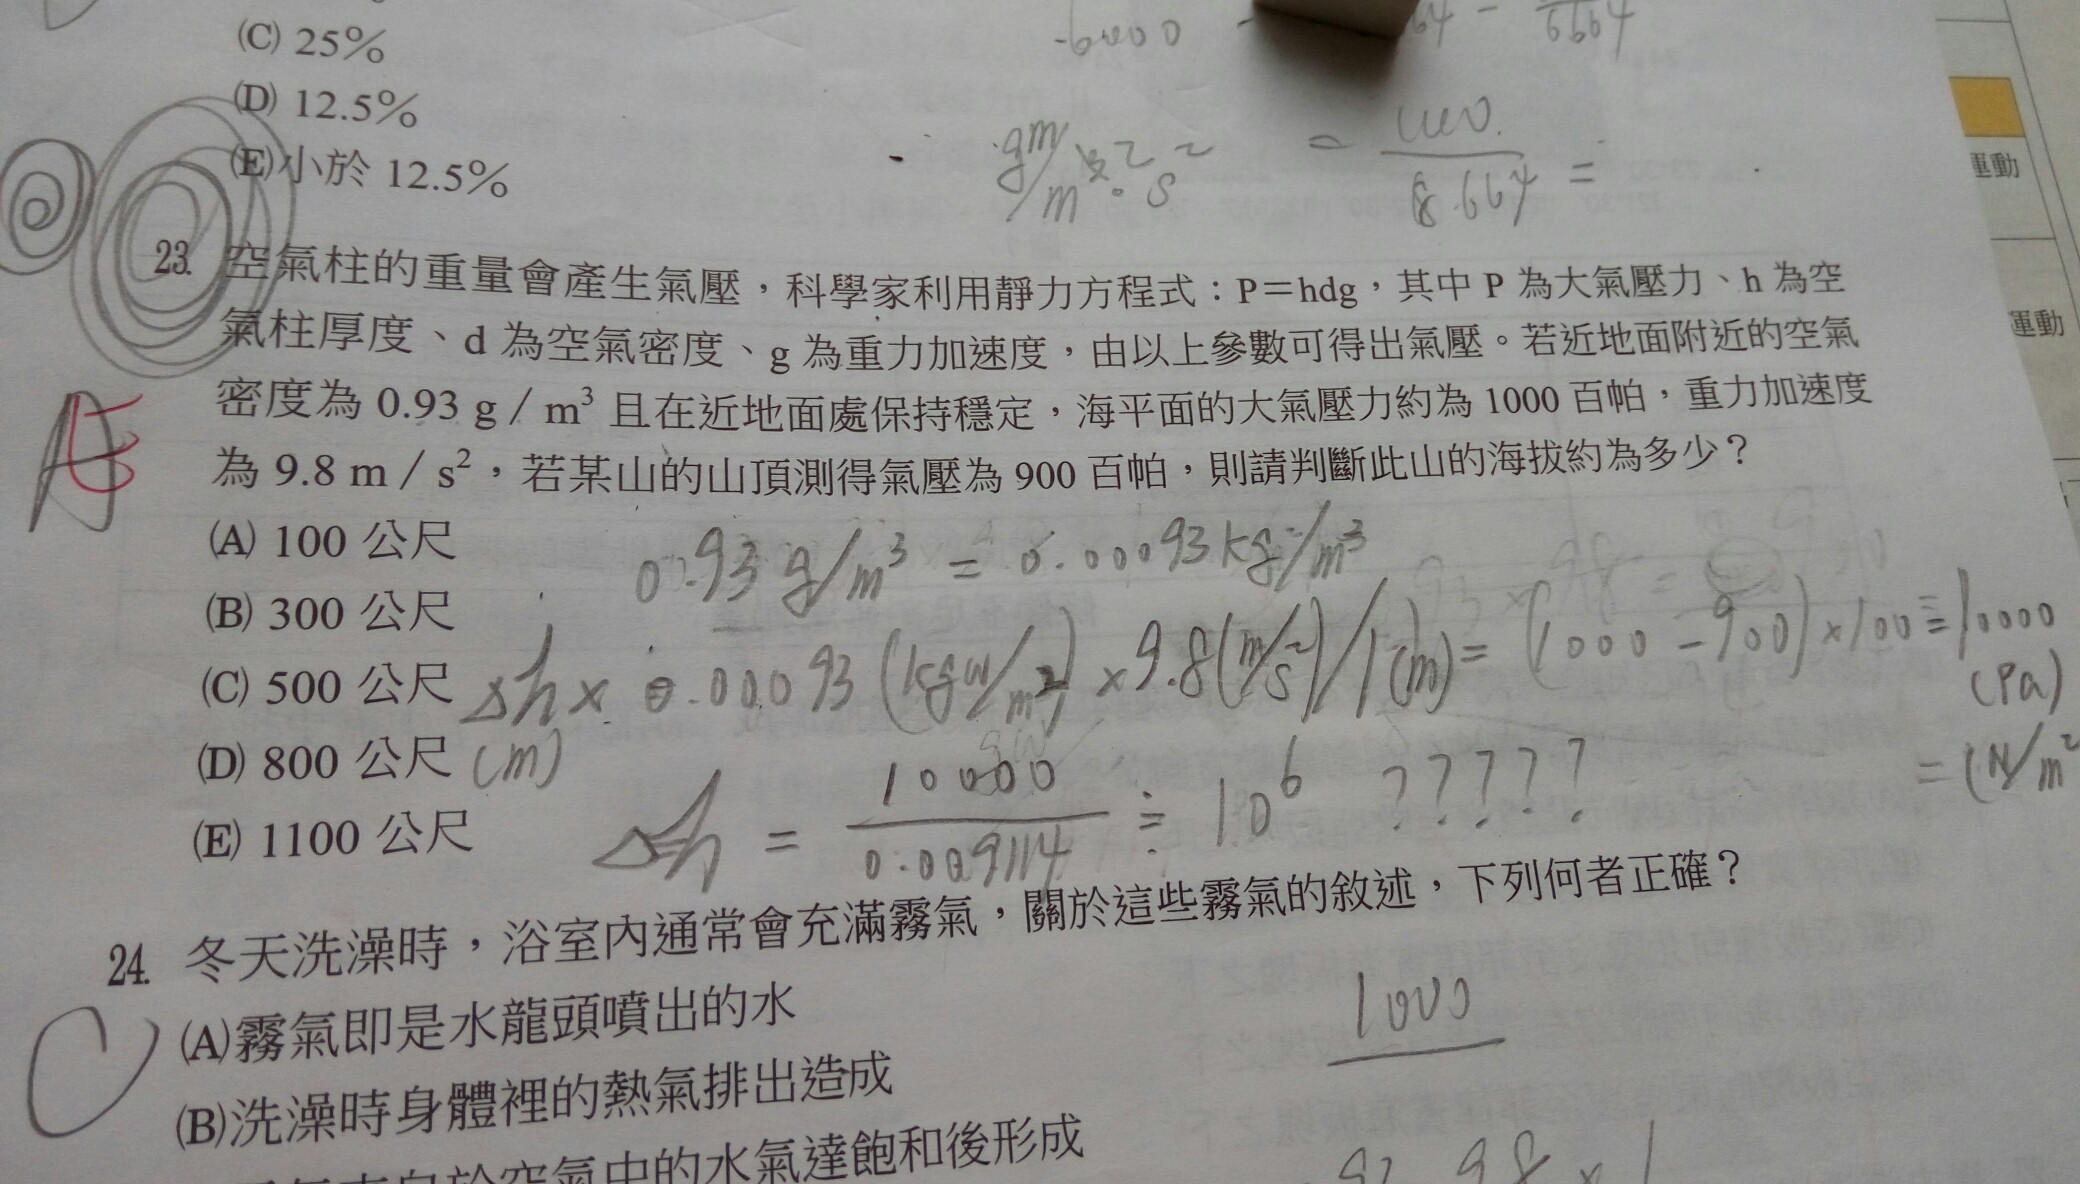 (C) 25%
(D) 12.5%
(E)小於 12.5%
-6000
6664
gm/m
s²
=
8.664 =
運動
運動
23. 空氣柱的重量會產生氣壓，科學家利用靜力方程式：P＝hdg，其中 P 為大氣壓力、h 為空
氣柱厚度、d 為空氣密度、g 為重力加速度，由以上參數可得出氣壓。若近地面附近的空氣
密度為 0.93 g / m³ 且在近地面處保持穩定，海平面的大氣壓力約為 1000 百帕，重力加速度
為 9.8 m / s²，若某山的山頂測得氣壓為 900 百帕，則請判斷此山的海拔約為多少？
A
E
(A) 100 公尺
0.93 g/m³ = 0.00093 kg/m³
(B) 300 公尺
(C) 500 公尺
Δh × 0.00093 (kgw/m²) × 9.8 (m/s²) / 1 (m) = (1000 - 900) × 100 ≒ 10000
(m)
(Pa)
= (N/m²
(D) 800 公尺
(E) 1100 公尺
Δh = 10000 / 0.009114 ≒ 10⁶ ?????
24. 冬天洗澡時，浴室內通常會充滿霧氣，關於這些霧氣的敘述，下列何者正確？
C
(A)霧氣即是水龍頭噴出的水
1000
(B)洗澡時身體裡的熱氣排出造成
空氣中的水氣達飽和後形成